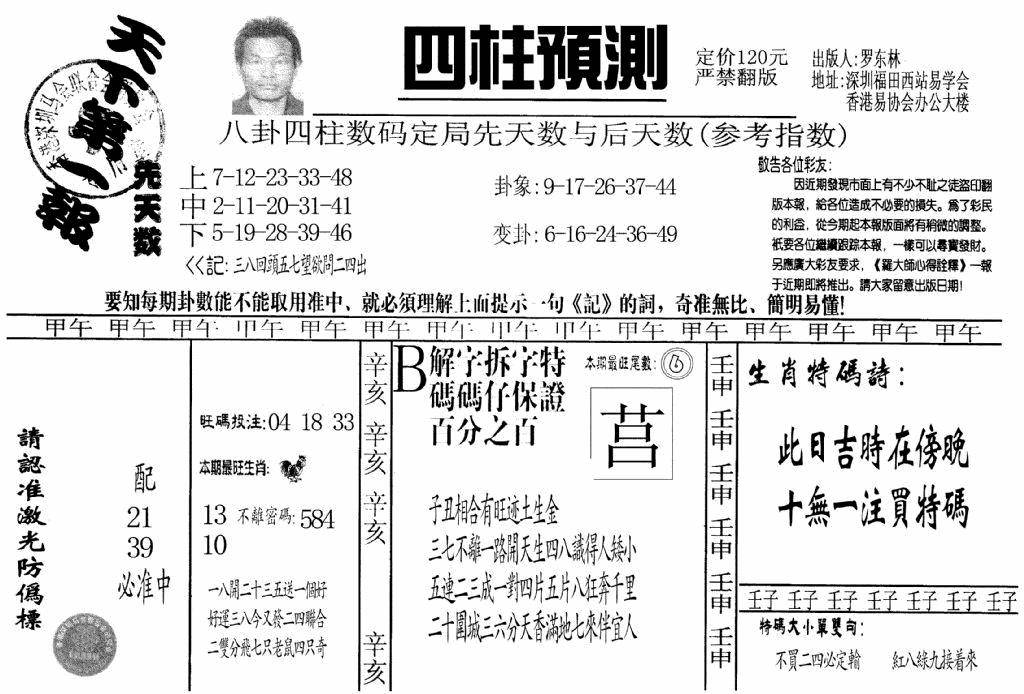 天下第一報
四柱預測
定价120元
严禁翻版
出版人:罗东林
地址:深圳福田西站易学会
香港易协会办公大楼
八卦四柱数码定局先天数与后天数(参考指数)
先天数
上 7-12-23-33-48
中 2-11-20-31-41
下 5-19-28-39-46
<<記:三八回頭五七望欲問二四出
卦象:9-17-26-37-44
变卦:6-16-24-36-49
敬告各位彩友:
因近期發現市面上有不少不耻之徒盜印翻
版本報,給各位造成不必要的損失。爲了彩民
的利益,從今期起本報版面將有稍微的調整。
衹要各位繼續跟踪本報,一樣可以尋寶發財。
另應廣大彩友要求,《羅大師心得詮釋》一報
于近期即將推出。請大家留意出版日期!
要知每期卦數能不能取用准中、就必須理解上面提示一句《記》的詞,奇准無比、簡明易懂!
甲午 甲午 甲午 甲午 甲午 甲午 甲午 甲午 甲午 甲午 甲午 甲午 甲午 甲午 甲午
請認准激光防僞標
配
21
39
必准中
旺碼投注:04 18 33
本期最旺生肖:
13 不離密碼:584
10
一八開二十三五送一個好
好運三八今又發二四聯合
二雙分飛七只老鼠四只奇
辛亥 辛亥 辛亥 辛亥
B 解字拆字特
碼碼仔保證
百分之百
本期最旺尾數:6
莒
子丑相合有旺迹土生金
三七不離一路開天生四八識得人矮小
五連二三成一對四片五片八狂奔千里
二十圍城三六分天香滿地七來伴宜人
壬申 壬申 壬申 壬申 壬申 壬申
生肖特碼詩:
此日吉時在傍晚
十無一注買特碼
壬子 壬子 壬子 壬子 壬子 壬子 壬子
特碼大小單雙句:
不買二四必定輸 紅八綠九接着來